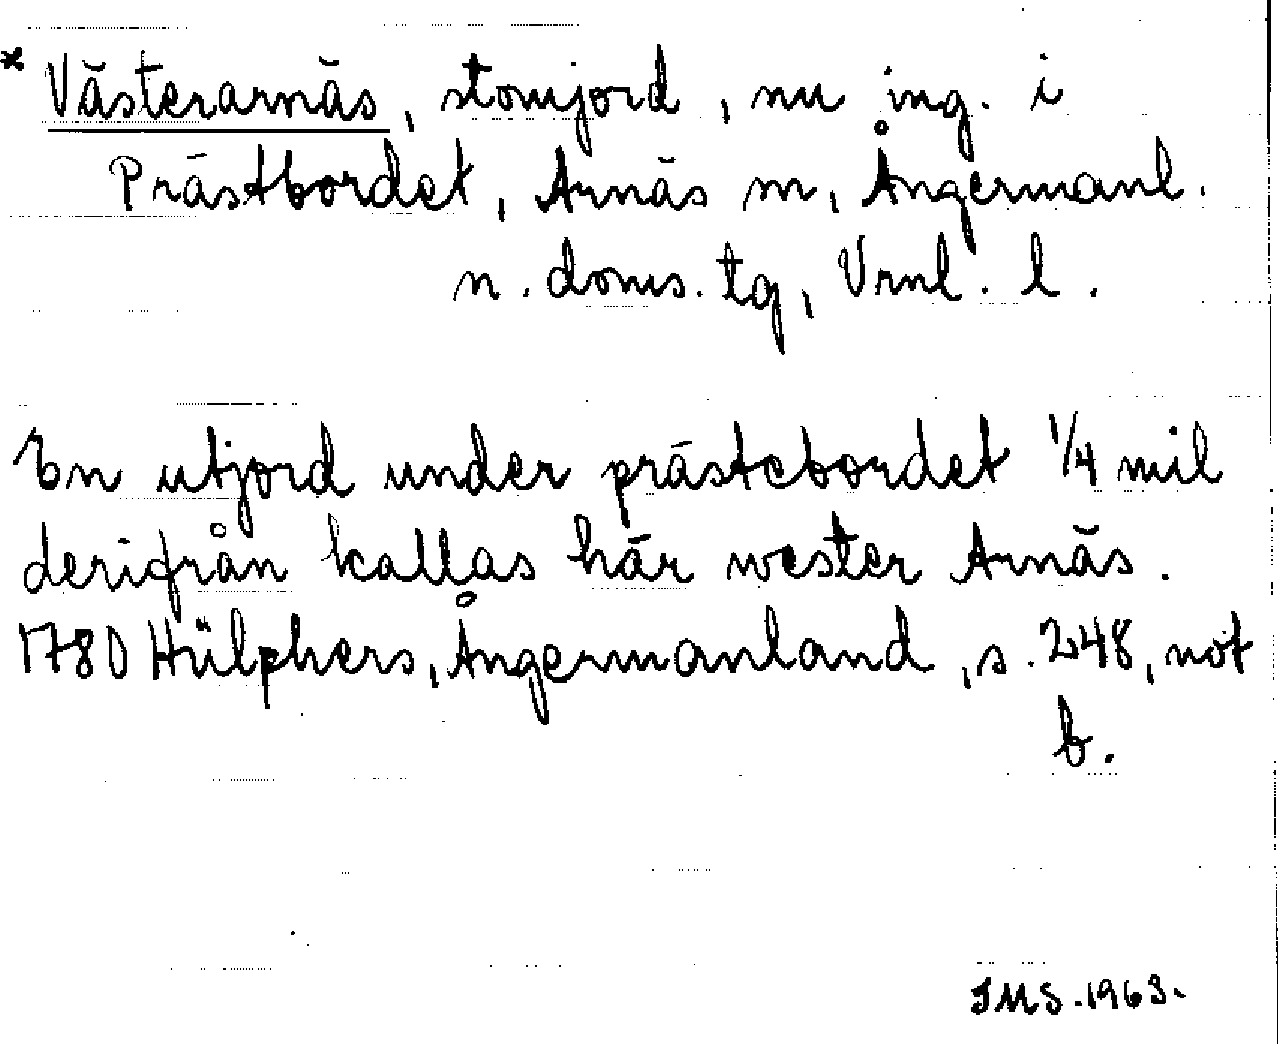 * Västerarnäs, stomjord, nu ing. i
Prästbordet, Arnäs sn, Ångermanl.
n. doms. tg, Vrnl. l.
En utjord under prästebordet 1/4 mil
derifrån kallas här wester Arnäs.
1780 Hülphers, Ångermanland, s. 248, not
b.
IMS. 1963.